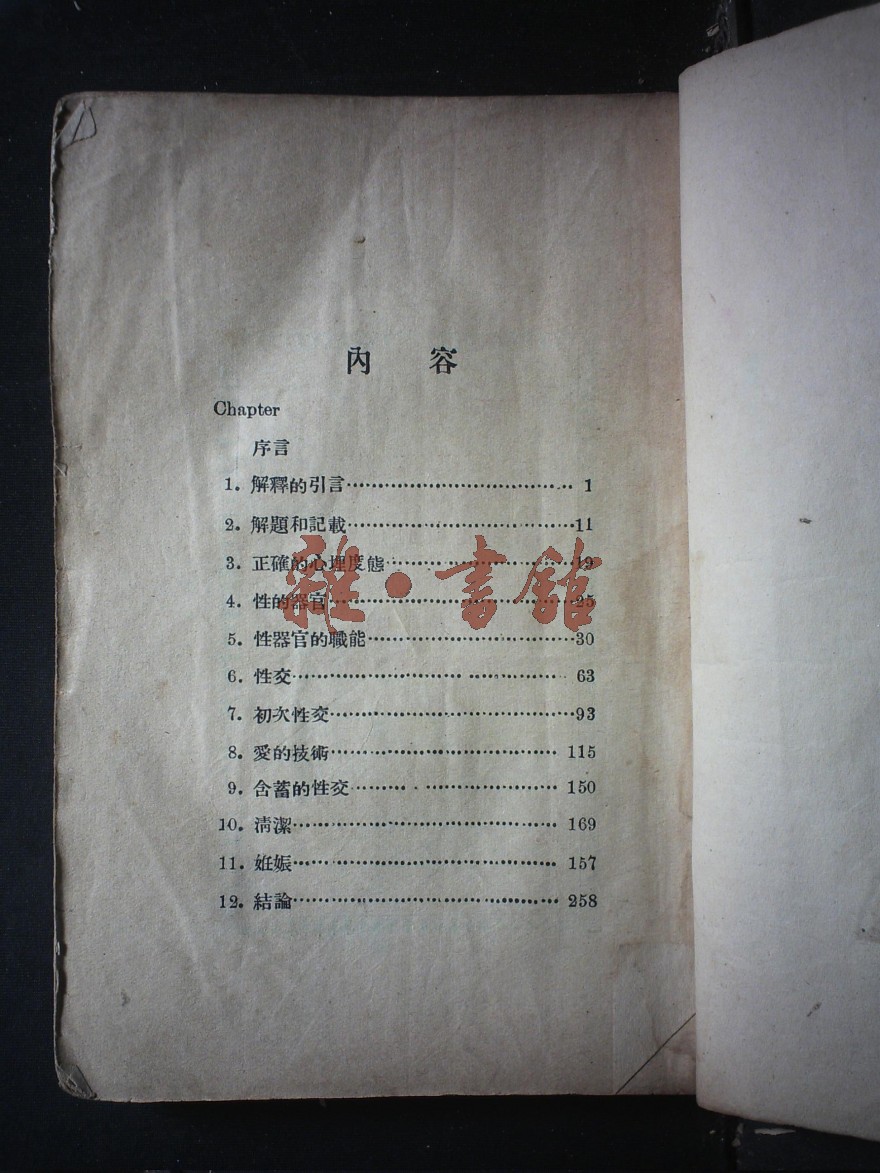 內 容
Chapter
序言
1. 解釋的引言 1
2. 解題和記載 11
3. 正確的心埋度態 19
4. 性的器官 25
5. 性器官的職能 30
6. 性交 63
7. 初次性交 93
8. 愛的技術 115
9. 含蓄的性交 150
10. 清潔 169
11. 姙娠 157
12. 結論 258
雜·書館